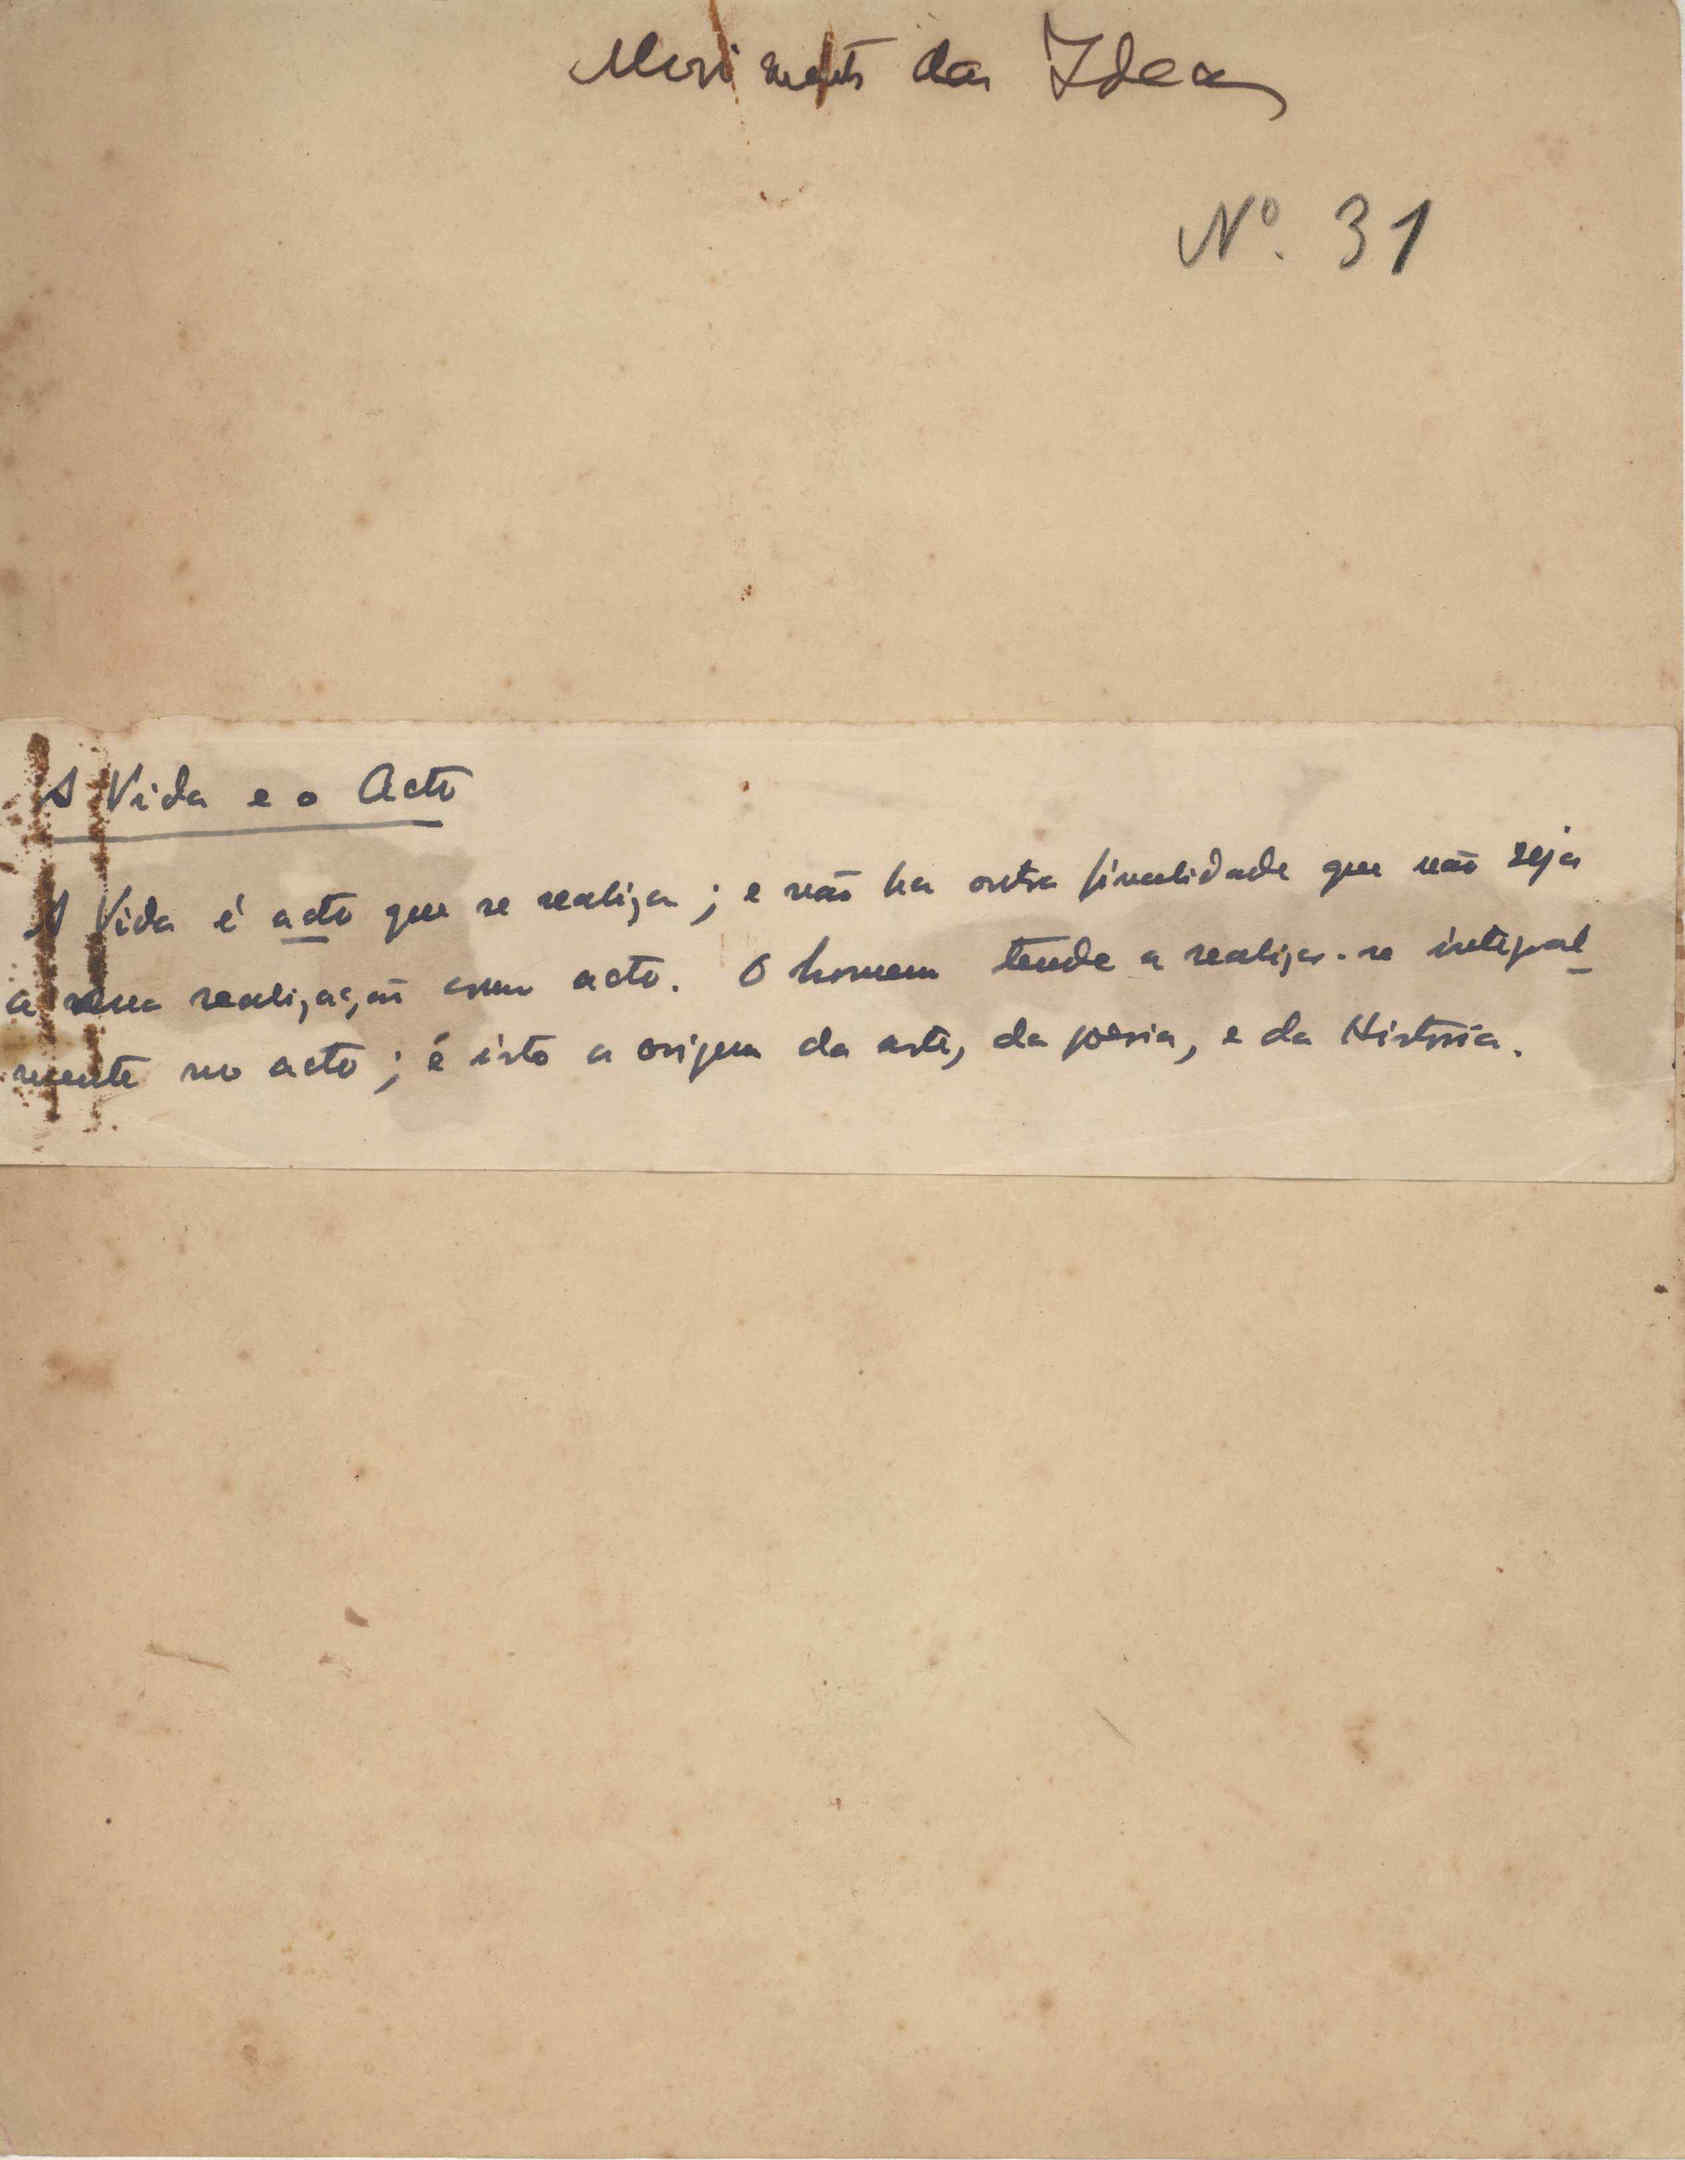 Movimento das Ideas
Nº. 31
A Vida e o Acto
A Vida é acto que se realiza; e não ha outra finalidade que não seja
a sua realização como acto. O homem tende a realizar-se integral-
mente no acto; é isto a origem da arte, da poesia, e da Historia.